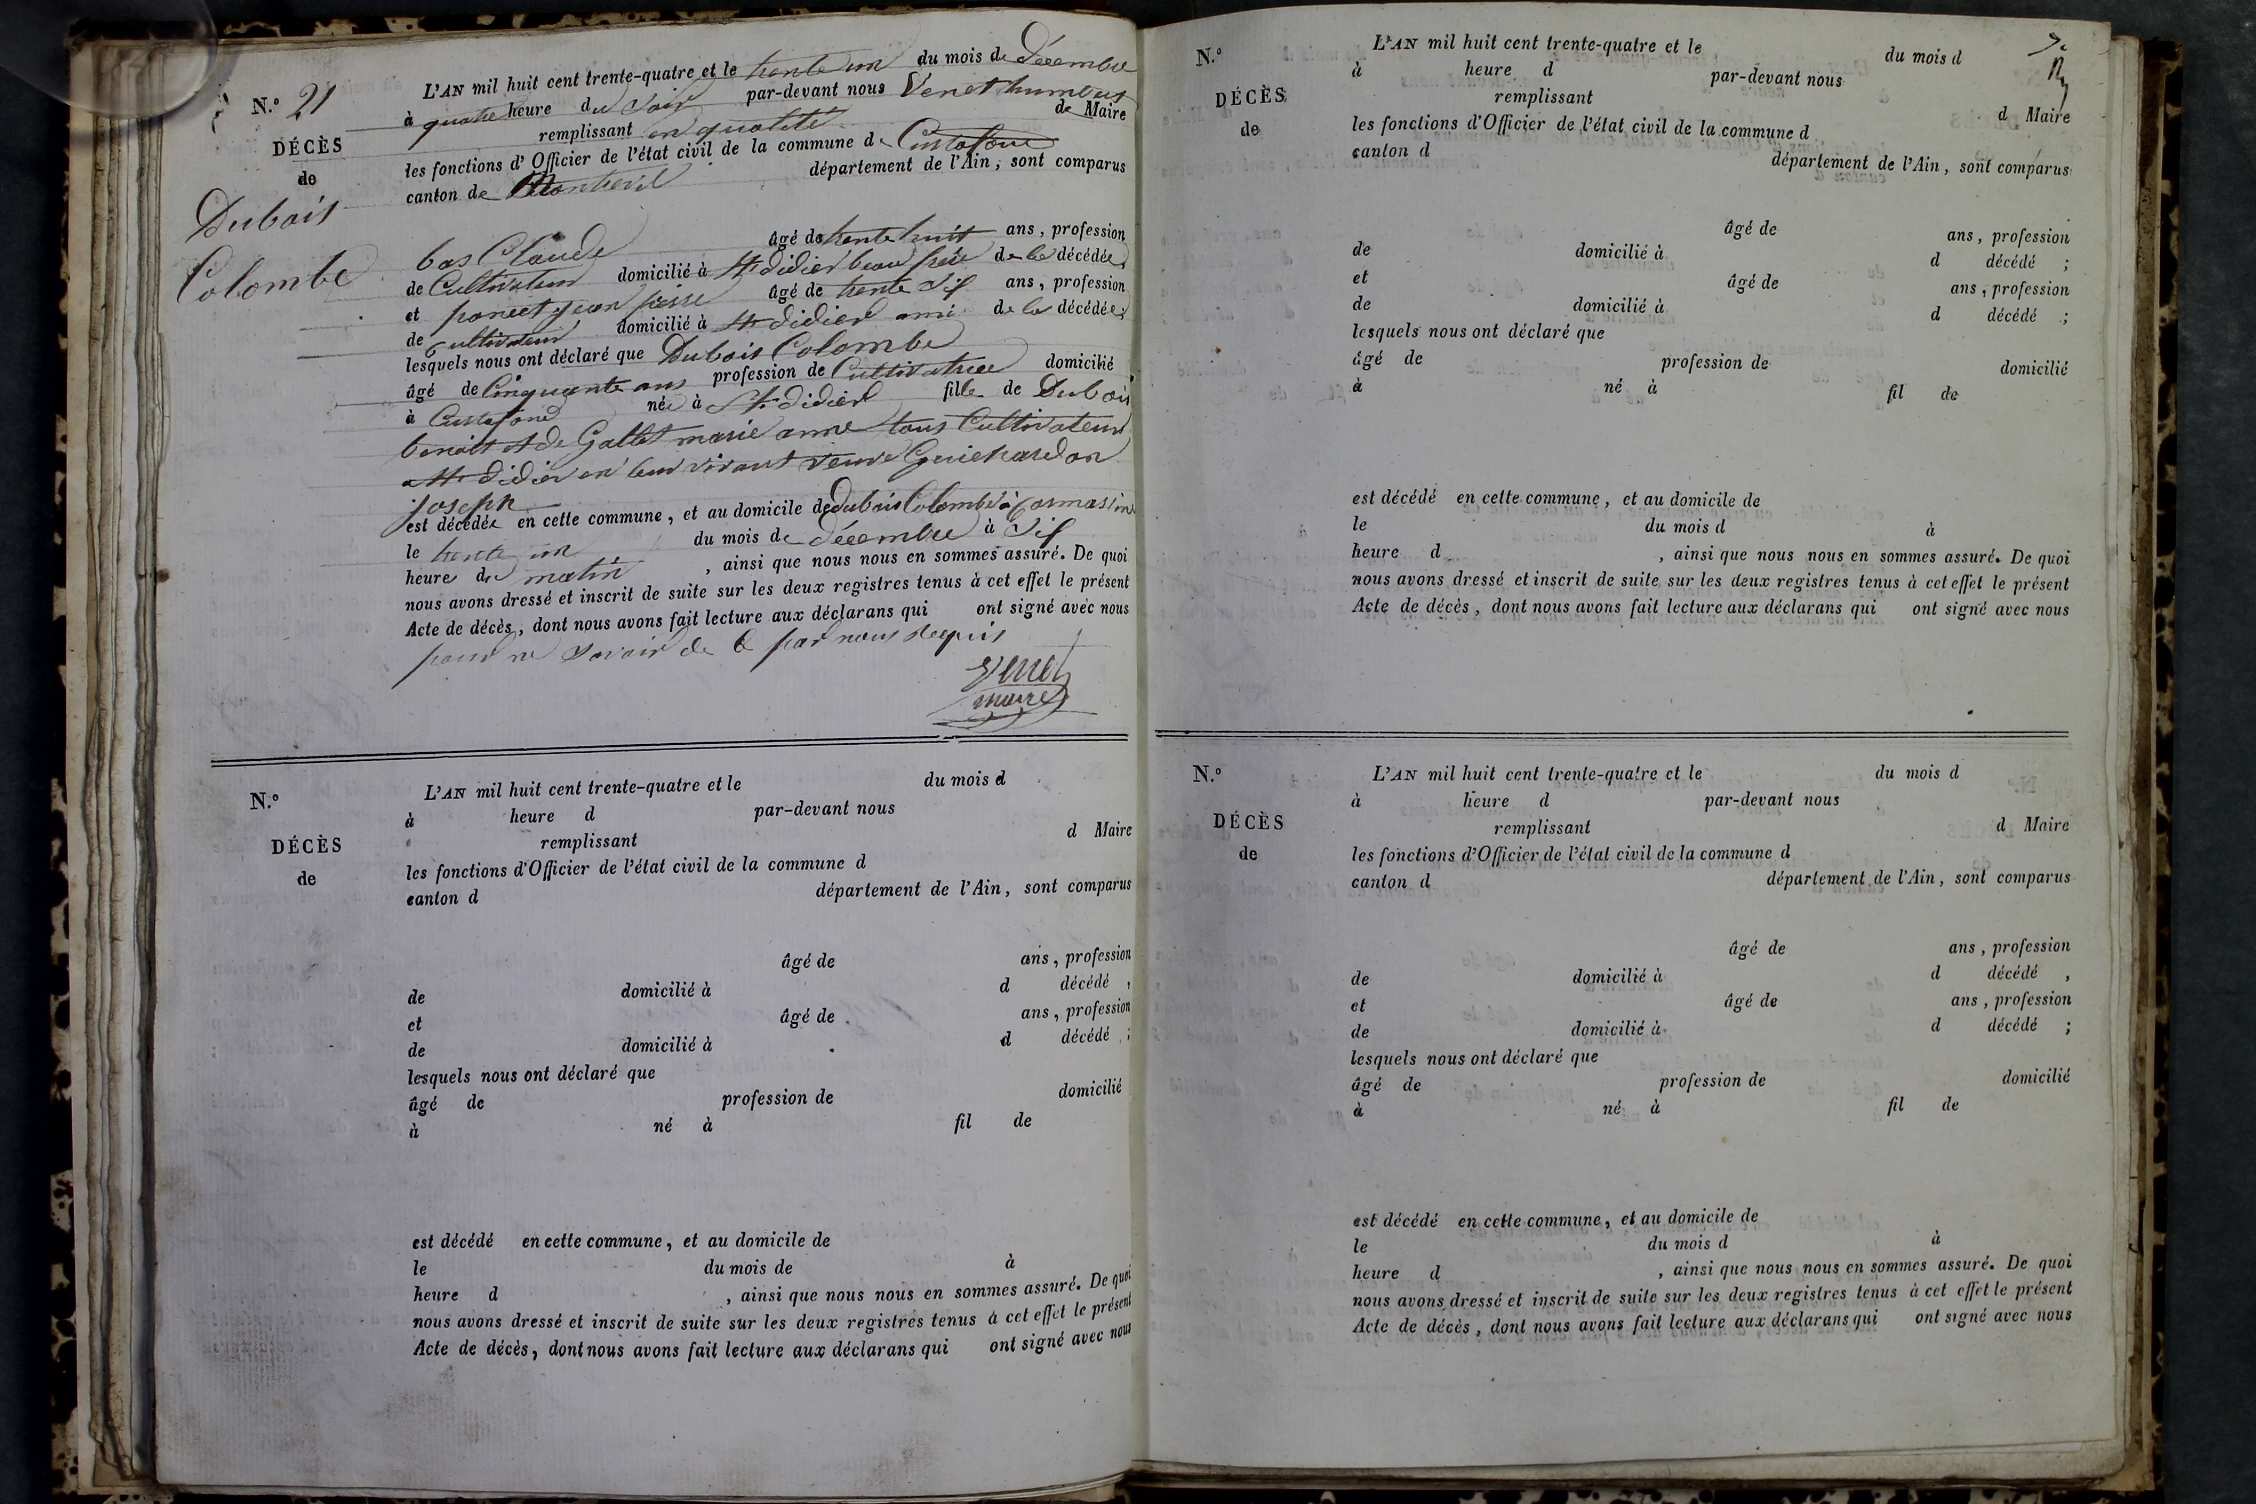 N.º 21
DÉCÈS
de
Dubois
Colombe
L'AN mil huit cent trente-quatre et le trente un du mois de Décembre
à quatre heure du Soir par-devant nous Venet humbert
remplissant en qualité de Maire
les fonctions d'Officier de l'état civil de la commune de Curtafond
canton de Montrevel département de l'Ain, sont comparus
bas Claude âgé de trente huit ans, profession
de Cultivateur domicilié à St didier beau frère de la décédée;
et poncet jean pierre âgé de trente Six ans, profession
de Cultivateur domicilié à St didier ami de la décédée;
lesquels nous ont déclaré que Dubois Colombe
âgé de Cinquante ans profession de Cultivatrice domicilié
à Curtafond née à St didier fille de Dubois
benoit et de Gallet marie anne tous Cultivateurs
a St didier en leur vivant veuve Guichardon
joseph
est décédée en cette commune, et au domicile de dubois Colombe à
le trente un du mois de décembre à Six
heure du matin, ainsi que nous nous en sommes assuré. De quoi
nous avons dressé et inscrit de suite sur les deux registres tenus à cet effet le présent
Acte de décès, dont nous avons fait lecture aux déclarans qui ont signé avec nous
pour ne Savoir de Ce par nous requis
Venet
maire
N.º
DÉCÈS
de
L'AN mil huit cent trente-quatre et le du mois d
à heure d par-devant nous
remplissant d Maire
les fonctions d'Officier de l'état civil de la commune d
canton d département de l'Ain, sont comparus
âgé de ans, profession
de domicilié à d décédé ,
et âgé de ans, profession
de domicilié à d décédé ;
lesquels nous ont déclaré que
âgé de profession de domicilié
à né à fil de
est décédé en cette commune, et au domicile de
le du mois de à
heure d , ainsi que nous nous en sommes assuré. De quoi
nous avons dressé et inscrit de suite sur les deux registres tenus à cet effet le présent
Acte de décès, dont nous avons fait lecture aux déclarans qui ont signé avec nous
N.º
DÉCÈS
de
L'AN mil huit cent trente-quatre et le du mois d
à heure d par-devant nous
remplissant d Maire
les fonctions d'Officier de l'état civil de la commune d
canton d département de l'Ain, sont comparus
âgé de ans, profession
de domicilié à d décédé ;
et âgé de ans, profession
de domicilié à d décédé ;
lesquels nous ont déclaré que
âgé de profession de domicilié
à né à fil de
est décédé en cette commune, et au domicile de
le du mois d à
heure d , ainsi que nous nous en sommes assuré. De quoi
nous avons dressé et inscrit de suite sur les deux registres tenus à cet effet le présent
Acte de décès, dont nous avons fait lecture aux déclarans qui ont signé avec nous
N.º
DÉCÈS
de
L'AN mil huit cent trente-quatre et le du mois d
à heure d par-devant nous
remplissant d Maire
les fonctions d'Officier de l'état civil de la commune d
canton d département de l'Ain, sont comparus
âgé de ans, profession
de domicilié à d décédé ,
et âgé de ans, profession
de domicilié à d décédé ;
lesquels nous ont déclaré que
âgé de profession de domicilié
à né à fil de
est décédé en cette commune, et au domicile de
le du mois d à
heure d , ainsi que nous nous en sommes assuré. De quoi
nous avons dressé et inscrit de suite sur les deux registres tenus à cet effet le présent
Acte de décès, dont nous avons fait lecture aux déclarans qui ont signé avec nous